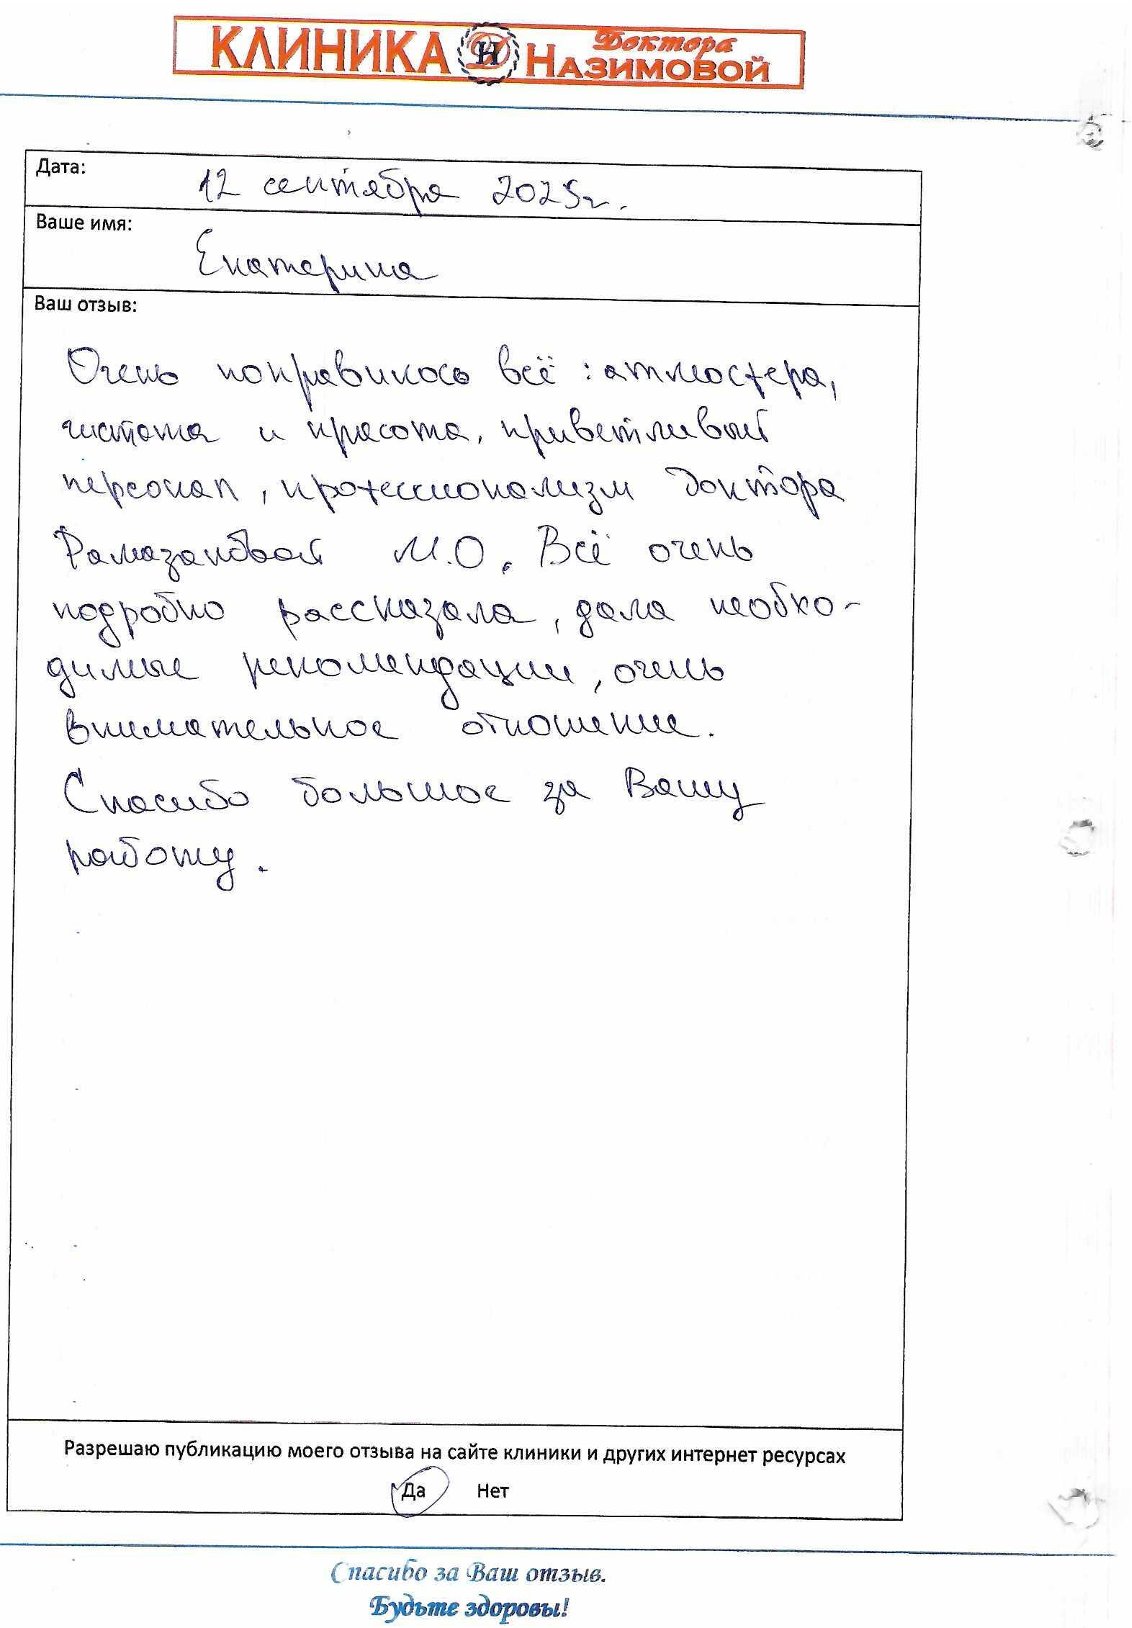 КЛИНИКА ДН Доктора НАЗИМОВОЙ
Дата: 12 сентября 2025г.
Ваше имя: Екатерина
Ваш отзыв:
Очень понравилось всё: атмосфера,
чистота и красота, приветливый
персонал, профессионализм доктора
Рамазановой М.О. Всё очень
подробно рассказала, дала необхо-
димые рекомендации, очень
внимательное отношение.
Спасибо большое за Вашу
работу.
Разрешаю публикацию моего отзыва на сайте клиники и других интернет ресурсах
Да Нет
Спасибо за Ваш отзыв.
Будьте здоровы!